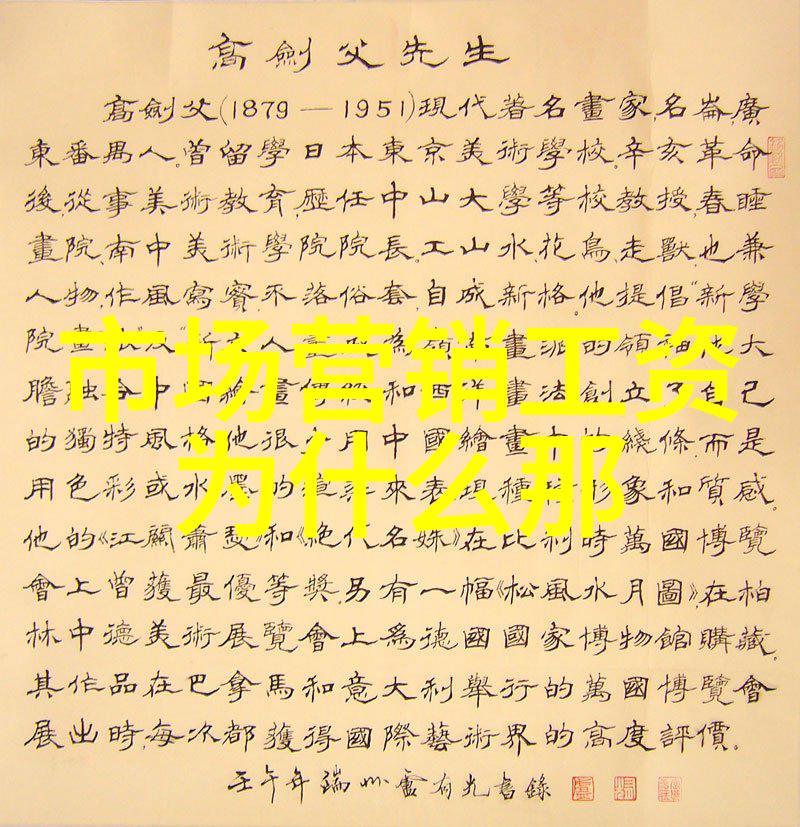 高劍父先生
高劍父(1879—1951)現代著名畫家,名崙,廣
東番禺人。曾留學日本東京美術學校。辛亥革命
後,從事美術教育,歷任中山大學等校教授,春睡
畫院、南中美術學院院長。工山水、花鳥、走獸,也兼
人物,作風寫實,不落俗套,自成新格。他提倡“新學
院畫
市场营销工资
畫派的領袖
大
膽融合中
畫
和西洋畫
法創立了自己
的獨特風格他很
用中國繪畫
的綫條,而是
用色彩或水墨的渲
來表現
種
形象和質感。
他的《江關蕭瑟》和《絕代名姝》在比利時萬國博覽
为什么那
會上曾獲最優等獎,另有一幅《松風水月圖》,在柏
林中德美術展覽會上為德國國家博物館購藏。
其作品在巴拿馬和意大利舉行的萬國博覽會
展出時,每次都獲得國際藝術界的高度評價。
壬午年端州盧有光書錄